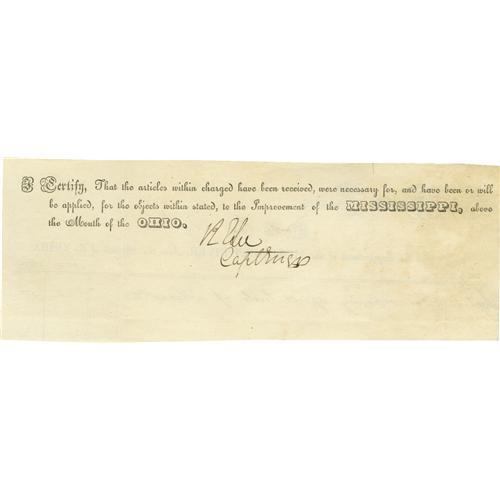 I Certify, That the articles within charged have been received, were necessary for, and have been or will
be applied, for the objects within stated, to the Improvement of the MISSISSIPPI, above
the Mouth of the OHIO.
R E Lee
Capt Engs